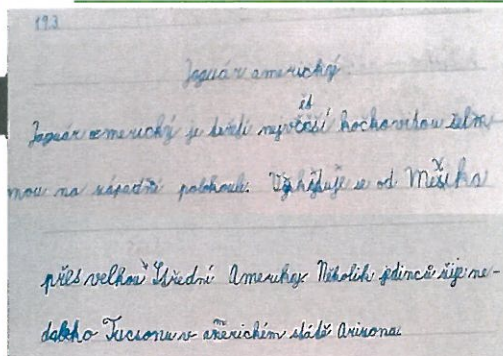 19.3
Jaguár americký
Jaguár americký je třetí největší kočkovitou šelm
mou na západní polokouli. se od Mexika
přes velkou Střední Ameriky. Několik jedinců žije ne-
daleko Tucsonu v americkém státě Arizona.